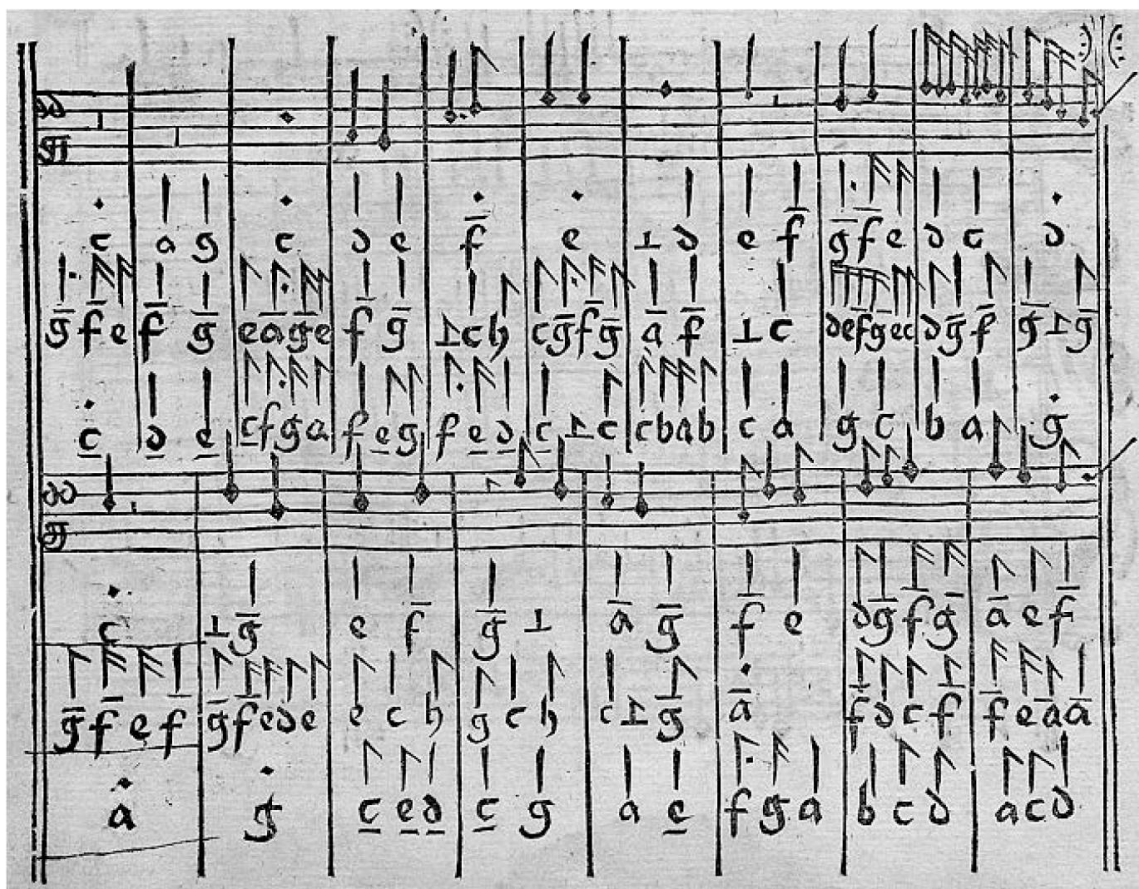 c a g c d e f̅ e ⊥ d e f̅ g̅ f̅ e d c d
g̅ f̅ e f̅ g̅ e a̅ g̅ e f̅ g̅ ⊥ c h c g̅ f̅ g̅ a̅ f̅ ⊥ c d e f̅ g̅ e c d g̅ f̅ g̅ ⊥ g̅
c̲ d̲ e̲ c̲ f g a f e̲ g f e̲ d̲ c̲ ⊥ c c b a b c a g c b a g
c ⊥ g̅ e f̅ g̅ ⊥ a̅ g̅ f̅ e d g̅ f̅ g̅ a̅ e f̅
g̅ f̅ e f̅ g̅ f e d e e c h g c h c ⊥ g̅ a̅ f̅ d c f̅ f̅ e a̅ a̅
a g c̲ e̲ d̲ c̲ g a e̲ f g a b c d a c d